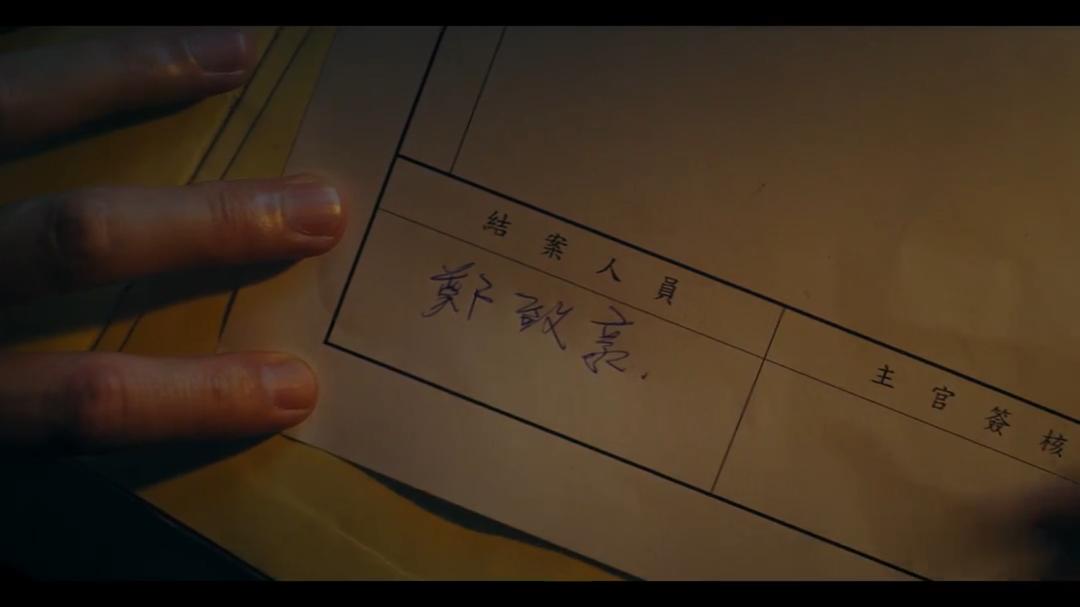 結案人員
主官簽核
鄭